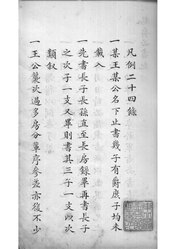 凡例二十四錄
一某王某公名下止書幾子有爵庶子均未
載入
一先書長子長孫直至長房錄畢再書長子
之次子一支又畢則書其三子一支以次
類叙
一王公襲次過多房分單序參差亦復不少